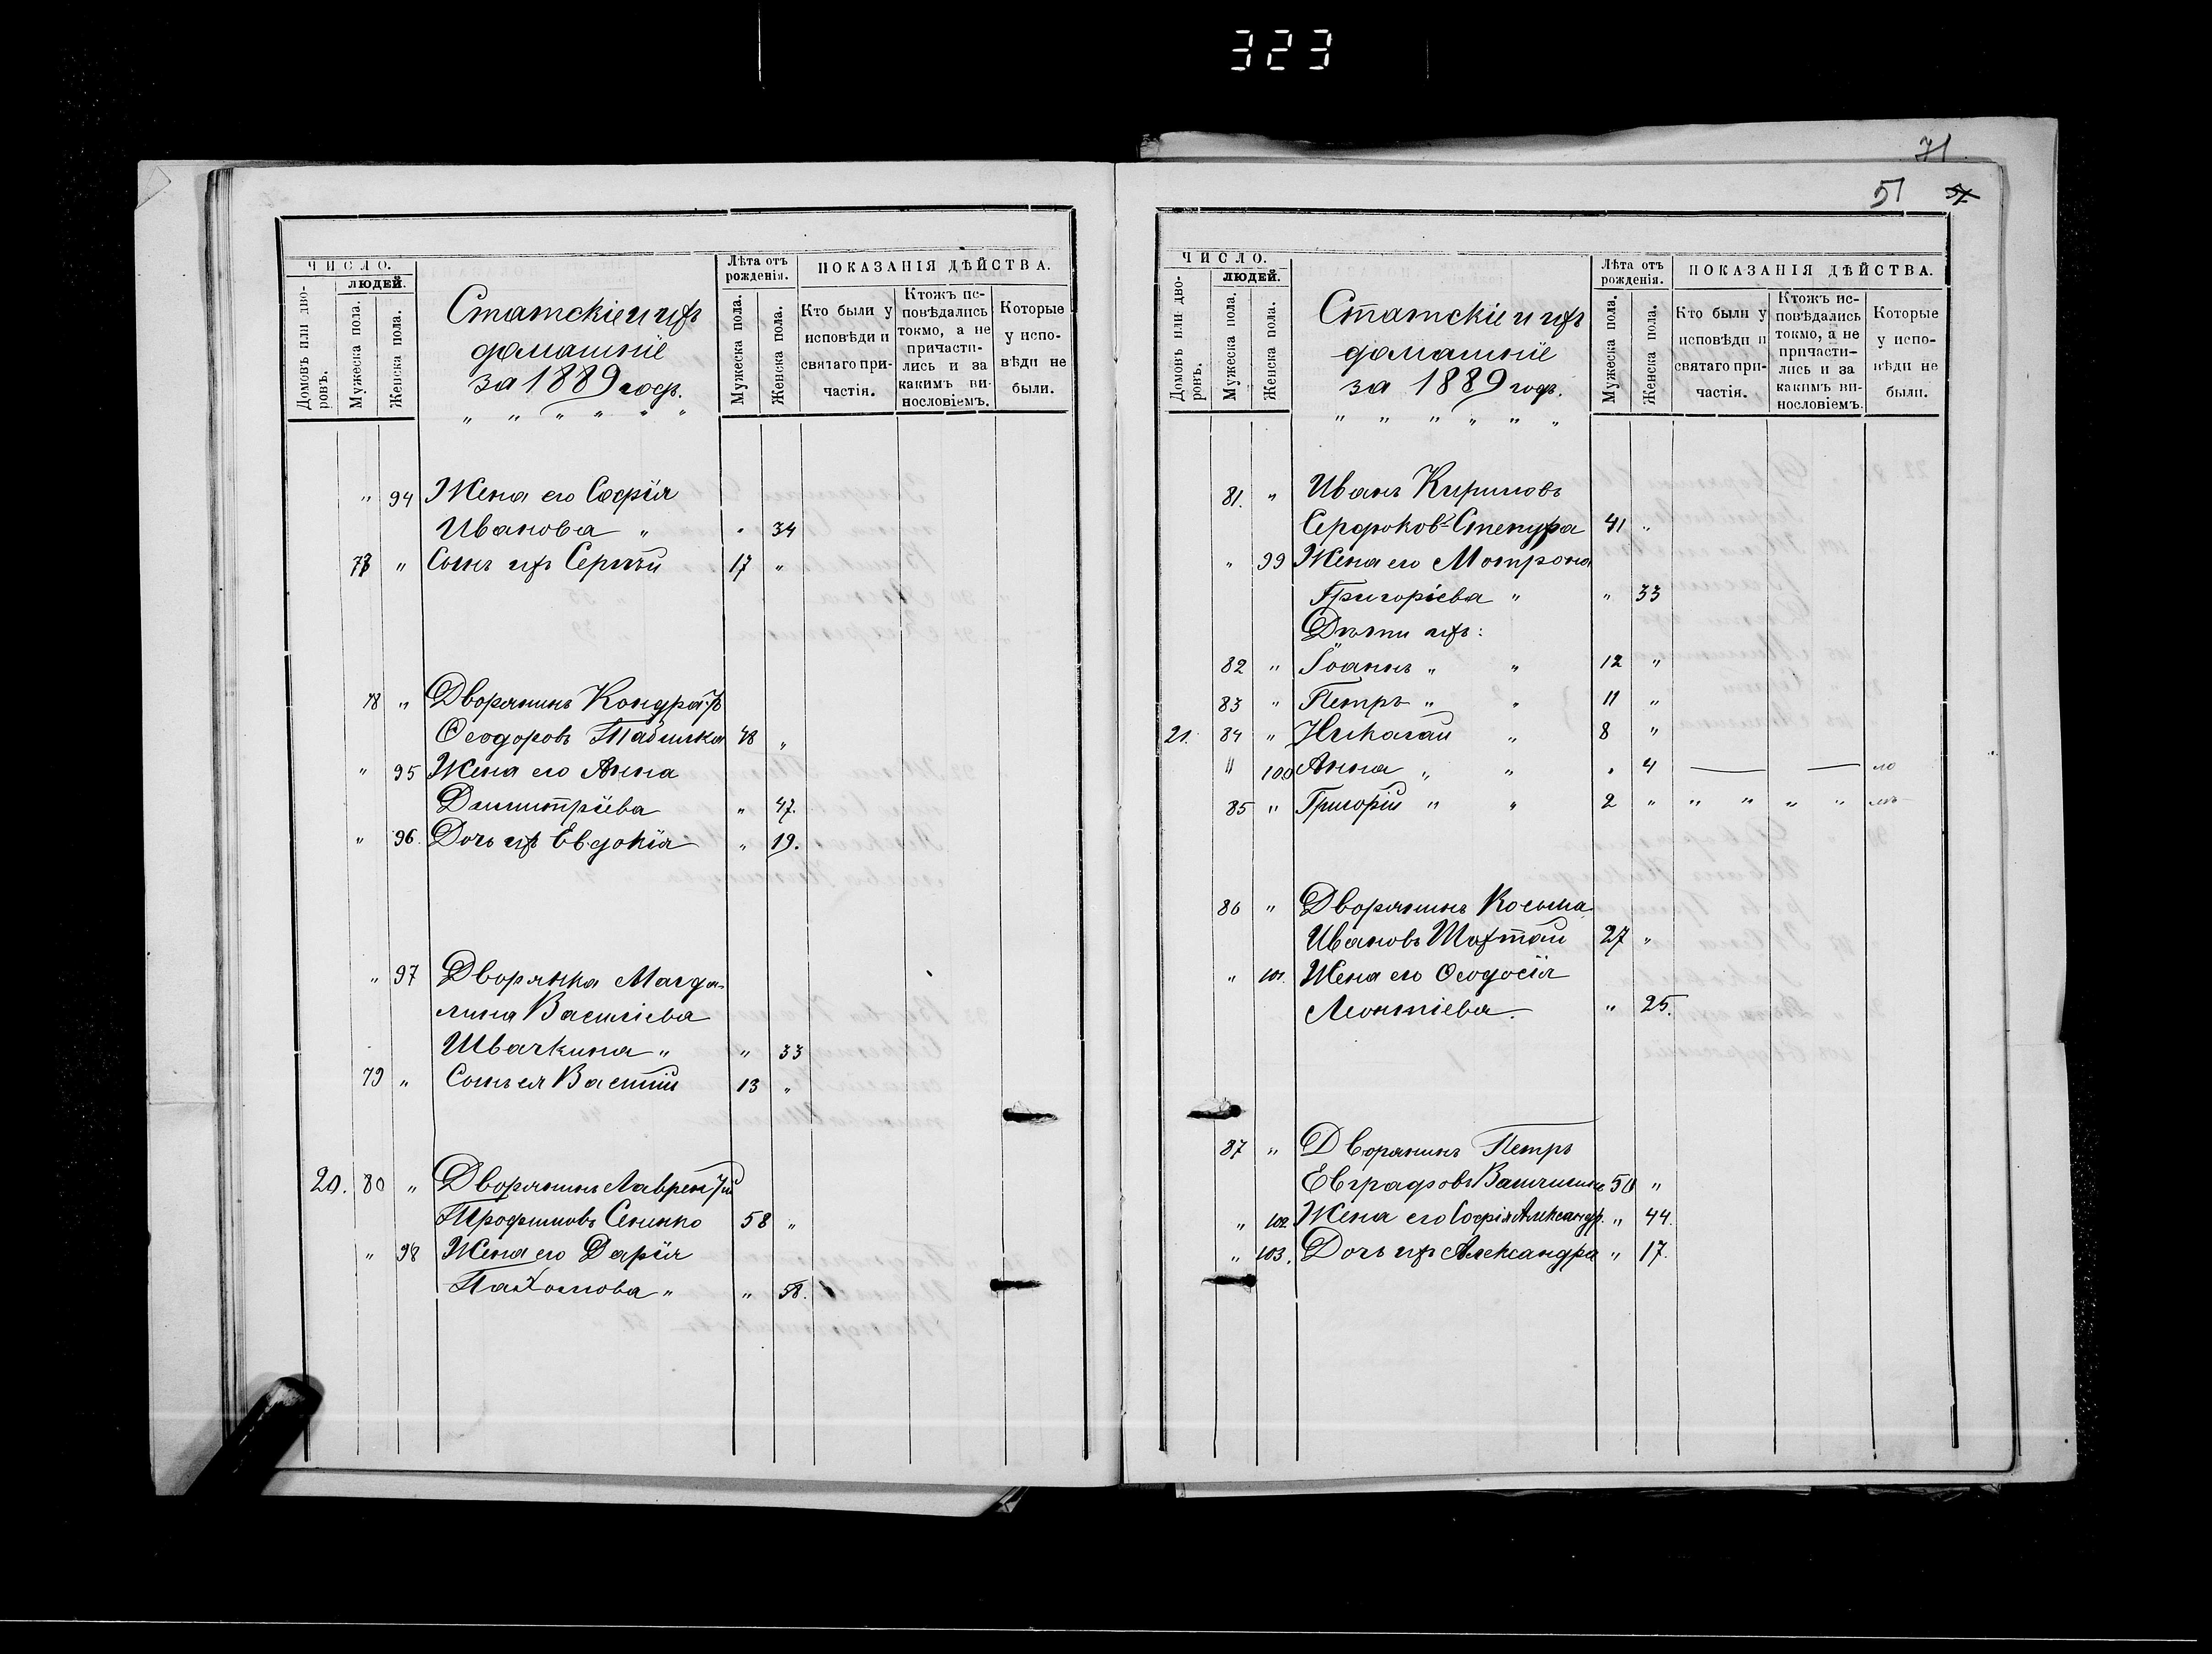 323
71
51
ЧИСЛО.
ЛЮДЕЙ.
Домовъ или дво-
ровъ.
Мужеска пола.
Женска пола.
Статскіе и ихъ
домашніе
за 1889 годъ.
" " " " " "
Лѣта отъ
рожденія.
Мужеска пола.
Женска пола.
ПОКАЗАНІЯ ДѢЙСТВА.
Кто были у
исповѣди и
святаго при-
частія.
Ктожъ ис-
повѣдались
токмо, а не
причасти-
лись и за
какимъ ви-
нословіемъ.
Которые
у испо-
вѣди не
были.
" 94 Жена его Софія
Иванова " " 34
77 " Сынъ ихъ Сергѣй 17 "
78 " Дворянинъ Кондратъ
Ѳеодоровъ 48 "
" 95 Жена его Анна
Димитріева " 47.
" 96. Дочь ихъ Евдокія " 19.
" 97 Дворянка Магда-
лина Василіева
Швачкина " " 33
79 " Сынъ ея Василій 13 "
20. 80 " Дворянинъ Лаврентій
Трофимовъ Сенинко 58 "
" 98 Жена его Дарія
Пахомова " " 58.
ЧИСЛО.
ЛЮДЕЙ.
Домовъ или дво-
ровъ.
Мужеска пола.
Женска пола.
Статскіе и ихъ
домашніе
за 1889 годъ.
" " " " " "
Лѣта отъ
рожденія.
Мужеска пола.
Женска пола.
ПОКАЗАНІЯ ДѢЙСТВА.
Кто были у
исповѣди и
святаго при-
частія.
Ктожъ ис-
повѣдались
токмо, а не
причасти-
лись и за
какимъ ви-
нословіемъ.
Которые
у испо-
вѣди не
были.
81. " Иванъ Кириловъ
Сердюковъ-Степура 41 "
" 99 Жена его Мотрона
Григоріева " " 33
Дѣти ихъ:
82 " Іоаннъ " " 12 "
83 " Петръ " " 11 "
21. 84 " Николай " 8 "
" 100 Анна " " " 4
85 " Григорій " " 2 " " " " "
86 " Дворянинъ Косьма
Ивановъ 27 "
" 101. Жена его Ѳеодосія
Леонтіева. " 25.
87 " Дворянинъ Петръ
Евграфовъ 50 "
" 102. Жена его Софія Александр. " 44.
" 103. Дочь ихъ Александра " 17.